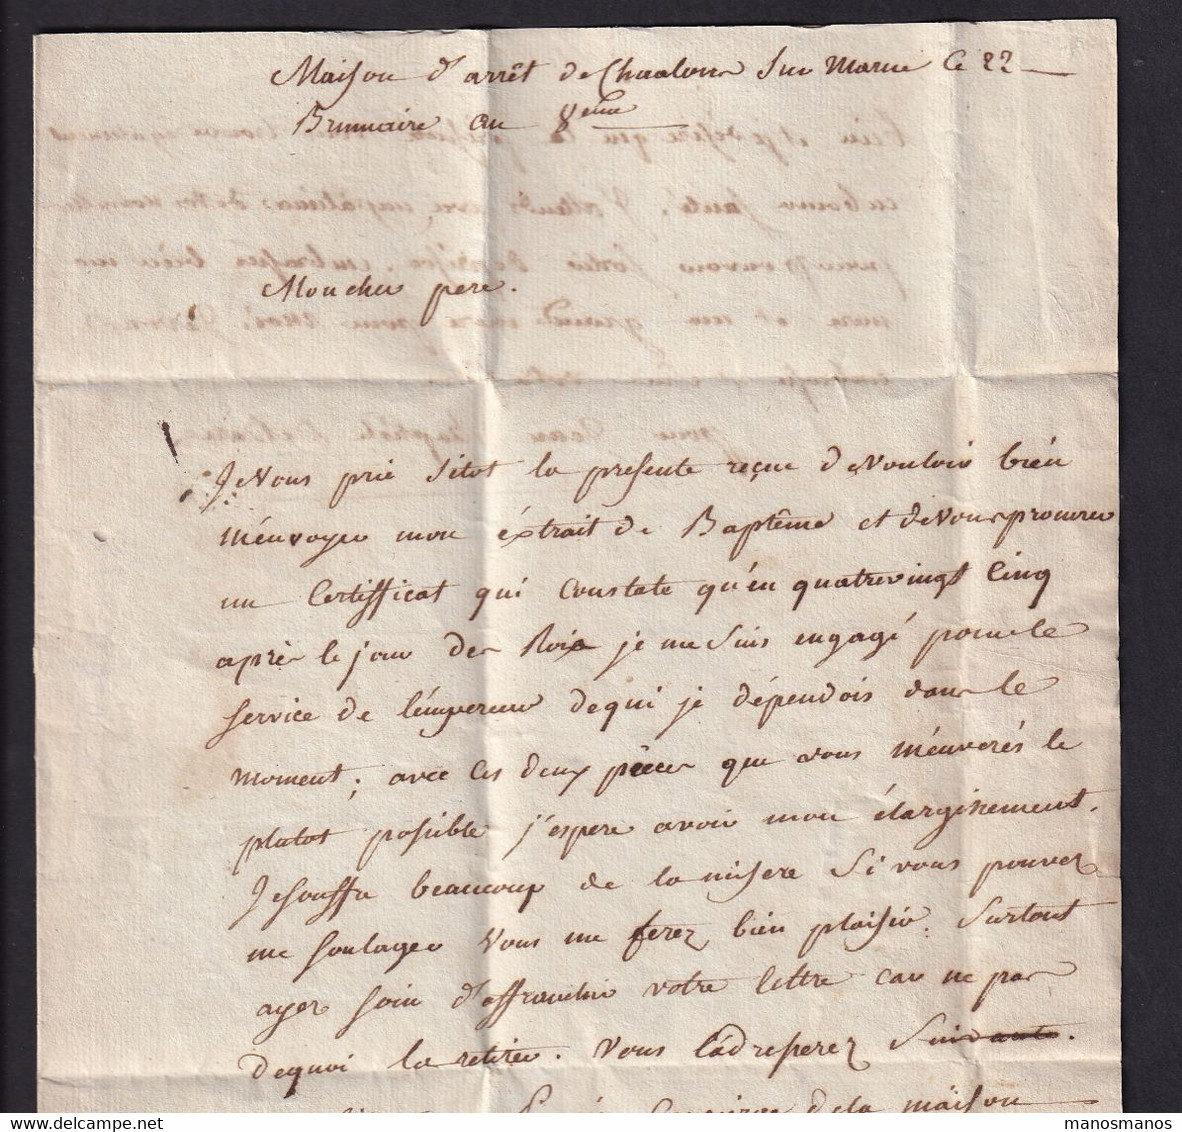 Maison d'arrêt de Chaalons Sur Marne Ce 22
Brumaire an 8eme
Moncher pere.
Je Vous prie Sitot la presente reçue de Vouloir bién
m'énvoyer mon éxtrait de Baptême et de Vous procurer
un Certifficat qui Constate qu'en quatrevingt Cinq
après le jour des Rois je me Suis engagé pour le
Service de l'émpereur de qui je dépendois dans le
moment; avec Ces deux pièces que vous m'énverés le
plutot possible j'espere avoir mon élargissement.
Je souffre beaucoup de la misere Si vous pouvez
me soulager Vous me ferez bién plaisir. Surtout
ayez soin d'affranchir votre lettre car ne pas
dequoi la retirée. Vous l'adresserez
de la maison
manosmanos